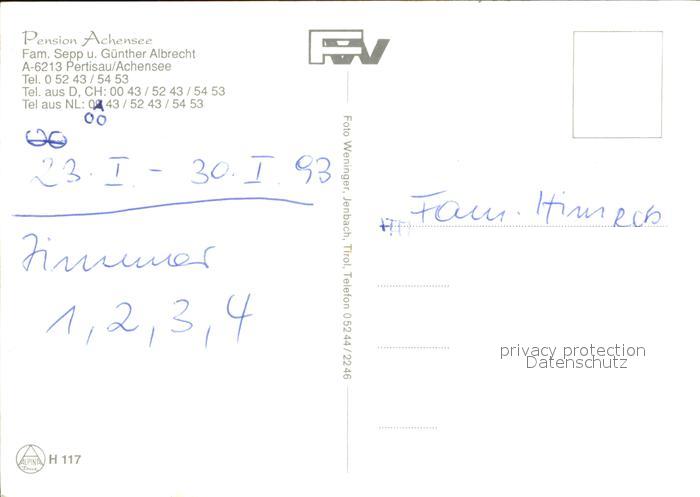 Pension Achensee
Fam. Sepp u. Günther Albrecht
A-6213 Pertisau/Achensee
Tel. 0 52 43 / 54 53
Tel. aus D, CH: 00 43 / 52 43 / 54 53
Tel aus NL: 0943 / 52 43 / 54 53
00
23. I. - 30. I. 93
Zimmer
1, 2, 3, 4
ALPINA
H 117
FW
Foto Weninger, Jenbach, Tirol, Telefon 0 52 44 / 22 46
Fam.
privacy protection
Datenschutz